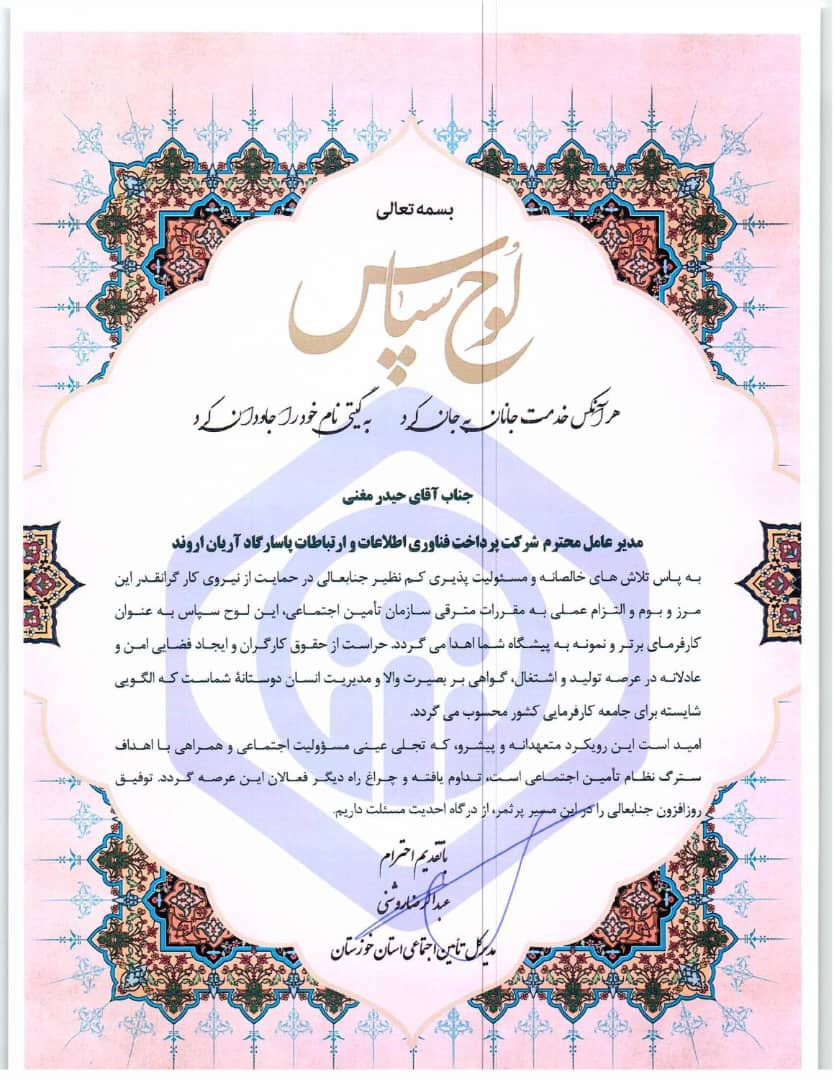 بسمه تعالی
لوح سپاس
هر آنکس خدمت جانان به جان کرد به گیتی نام خود را جاودان کرد
جناب آقای حیدر مغنی
مدیر عامل محترم شرکت پرداخت فناوری اطلاعات و ارتباطات پاسارگاد آریان اروند
به پاس تلاش های خالصانه و مسئولیت پذیری کم نظیر جنابعالی در حمایت از نیروی کار گرانقدر این
مرز و بوم و التزام عملی به مقررات مترقی سازمان تأمین اجتماعی، این لوح سپاس به عنوان
کارفرمای برتر و نمونه به پیشگاه شما اهدا می گردد. حراست از حقوق کارگران و ایجاد فضایی امن و
عادلانه در عرصه تولید و اشتغال، گواهی بر بصیرت والا و مدیریت انسان دوستانهٔ شماست که الگویی
شایسته برای جامعه کارفرمایی کشور محسوب می گردد.
امید است این رویکرد متعهدانه و پیشرو، که تجلی عینی مسؤولیت اجتماعی و همراهی با اهداف
سترگ نظام تأمین اجتماعی است، تداوم یافته و چراغ راه دیگر فعالان این عرصه گردد. توفیق
روزافزون جنابعالی را در این مسیر پرثمر، از درگاه احدیت مسئلت داریم.
با تقدیم احترام
عبدالرضا روشنی
مدیرکل تأمین اجتماعی استان خوزستان